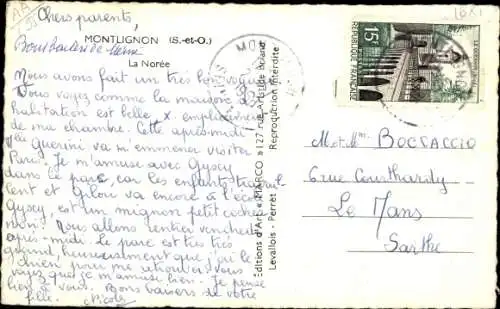 Chers parents,
MONTLIGNON (S.-et-O.)
La Norée
Nous avons fait un très bon voyage
Vous voyez comme la maison
habitation est belle x emplacement
de ma chambre. Cette après-midi
Mlle Guerini va m'emmener visiter
Paris. Je m'amuse avec Gypsy
dans le parc, car les enfants travail
lent et Gilou va encore à l'école
Gypsy, est un mignon petit cocker
noir. Nous allons rentrer vendredi
après-midi. Le parc est très très
grand, heureusement que j'ai le
chien pour me retrouver. Vous
voyez que je m'amuse bien. Je pense
bien à vous. Bons baisers de votre
fille. Nicole
Editions d'Art « MARCO » 127 rue Aristide Briand
Levallois - Perret
Reproduction interdite
REPUBLIQUE FRANÇAISE
15F
LE QUESNOY
Mr et Mme BOCCACCIO
6 rue Courthardy
Le Mans
Sarthe